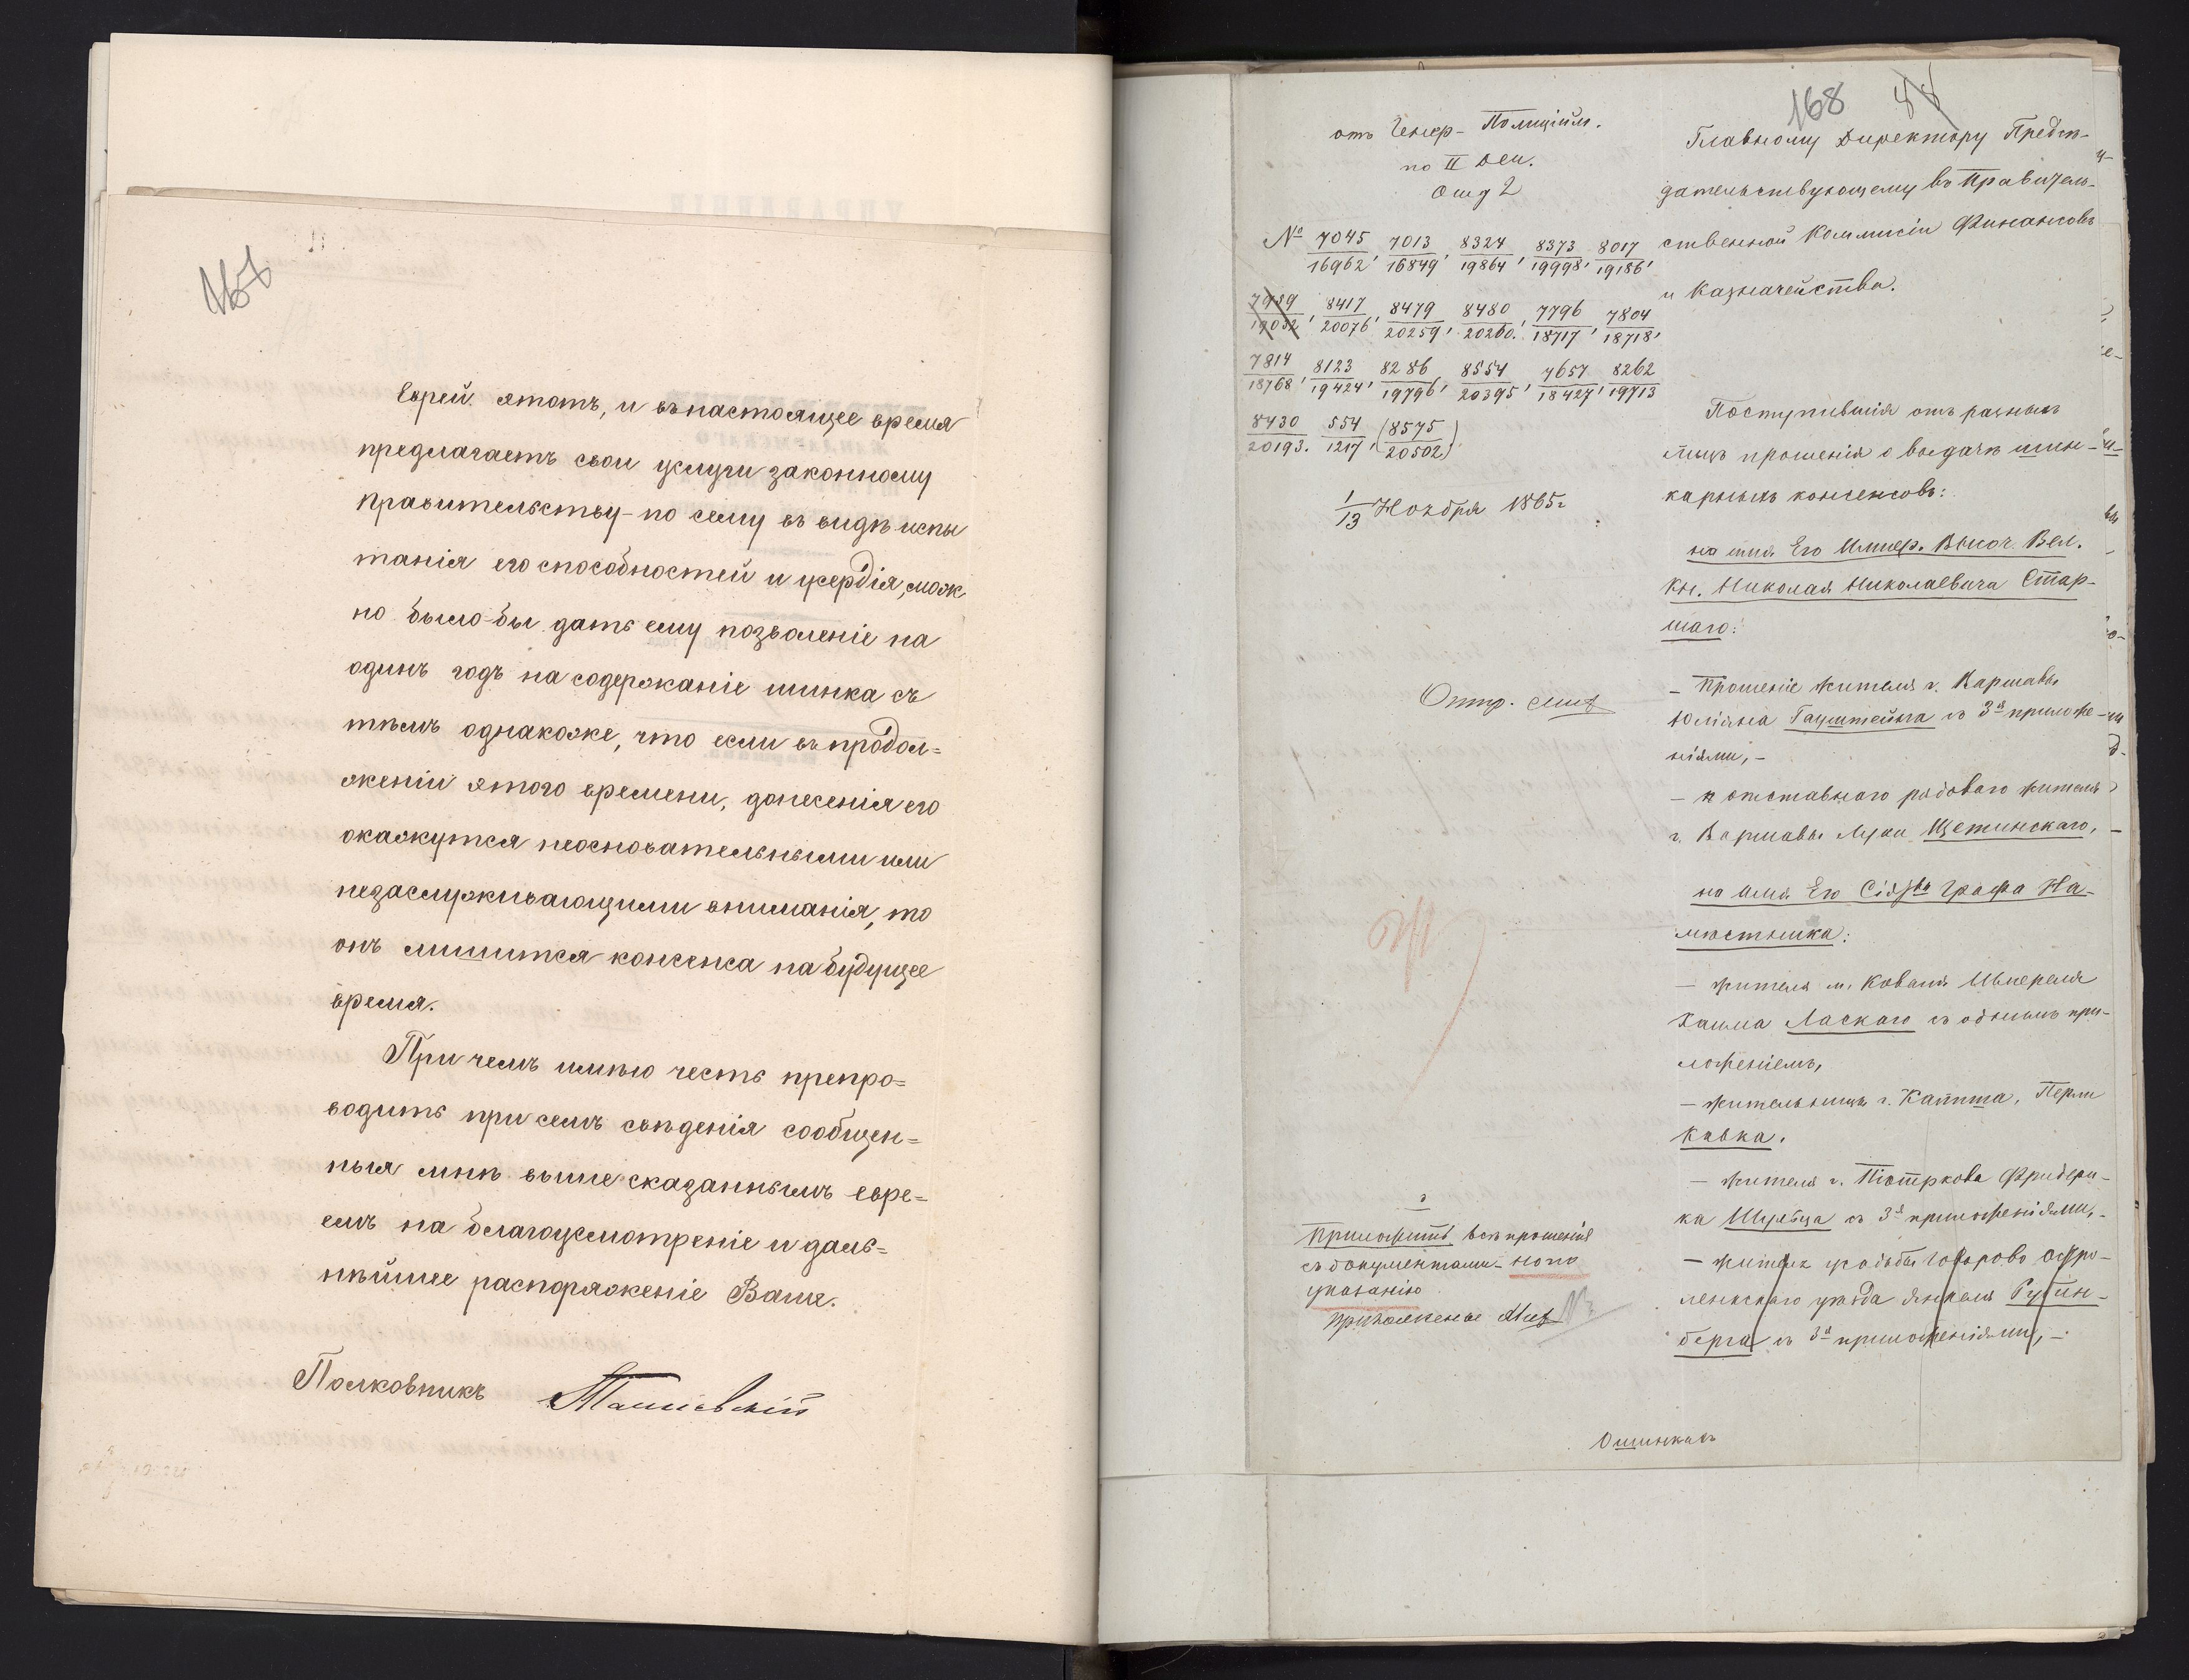 Еврей этотъ, и въ настоящее время
предлагаетъ свои услуги законному
Правительству - по сему въ видѣ испы
танія его способностей и усердія, мож
но было-бы дать ему позволеніе на
одинъ годъ на содержаніе шинка съ
тѣмъ однакоже, что если въ продол=
женіи этого времени, донесенія его
окажутся неосновательными или
незаслуживающими вниманія, то
онъ лишится консенса на будущее
время.
При чемъ имѣю честь препро=
водить при семъ свѣденія сообщен=
ныя мнѣ вышесказаннымъ евре=
емъ на благоусмотреніе и даль=
нѣйшее распоряженіе Ваше.
Полковникъ
168
отъ Генер- Полиційм.
по II Деп.
Отд 2
№ 7045/16962, 7013/16849, 8324/19864, 8373/19998, 8017/19186,
7989/19032, 8417/20076, 8479/20259, 8480/20260. 7796/18717, 7804/18718,
7814/18768, 8123/19424, 8286/19796, 8554/20395, 7657/18427, 8262/19713
8430/20193. 554/1217, (8575/20502)
1/13 Ноября 1865г
Отпр.
Приложить всѣ прошенія
съ документами - но по
указанію
приложенные
Главному Директору Предсѣ-
дательствующему въ Правитель-
ственной Коммисіи Финансовъ
и Казначейства.
Поступившія отъ разныхъ
лицъ прошенія о выдачѣ шин-
карныхъ консенсовъ:
на имя Его Импер. Высоч. Вел.
Кн. Николая Николаевича Стар-
шаго:
- Прошеніе жителя г. Варшавы
Юліана Гауштейна съ 3я приложе-
ніями, -
- отставнаго рядоваго жителя
г. Варшавы Щетинскаго,
на имя Его Сіятва Графа На-
мѣстника:
- жителя м. Коваля
Хаима Ласкаго съ однимъ при-
ложеніемъ,
- жительницы г. Калиша, Перли
Кавка.
- жителя г. Піотркова Фридери-
ка съ 3я приложеніями, -
- жителя усадьбы
ленскаго уѣзда Янкеля Рубин-
берга съ 3я приложеніями, -
О шинкахъ